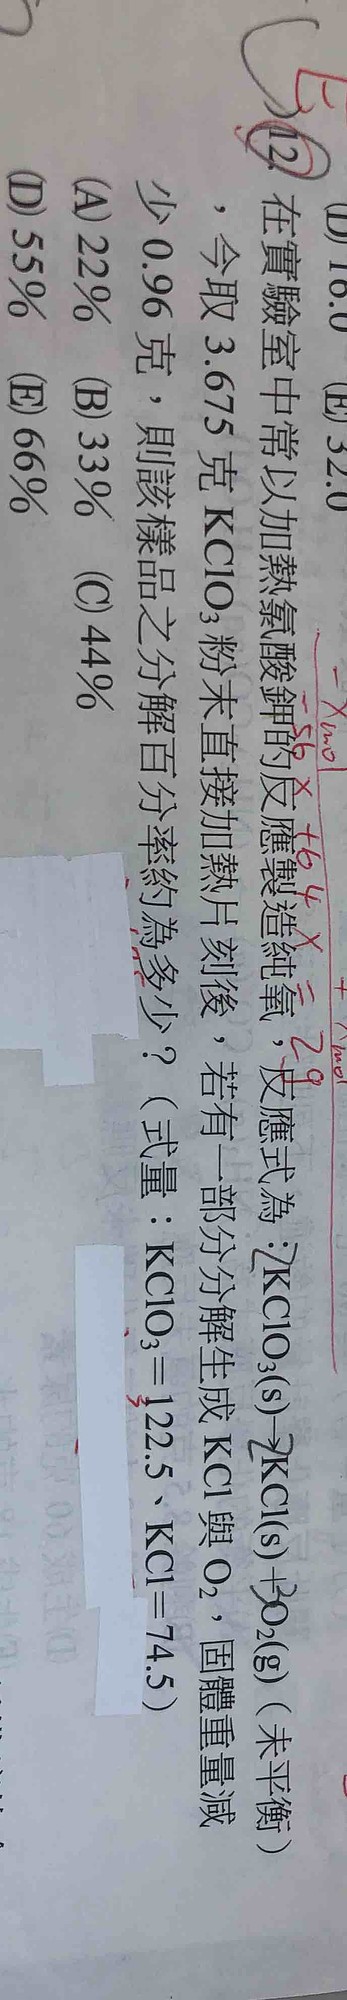 (D) 16.0 (E) 32.0
-x mol + x mol
-56x + 64x = 29
E
12. 在實驗室中常以加熱氯酸鉀的反應製造純氧，反應式為：2KClO₃(s)→2KCl(s)+3O₂(g)（未平衡）
，今取 3.675 克 KClO₃ 粉末直接加熱片刻後，若有一部分分解生成 KCl 與 O₂，固體重量減
少 0.96 克，則該樣品之分解百分率約為多少？（式量：KClO₃＝122.5、KCl＝74.5）
(A) 22% (B) 33% (C) 44%
(D) 55% (E) 66%